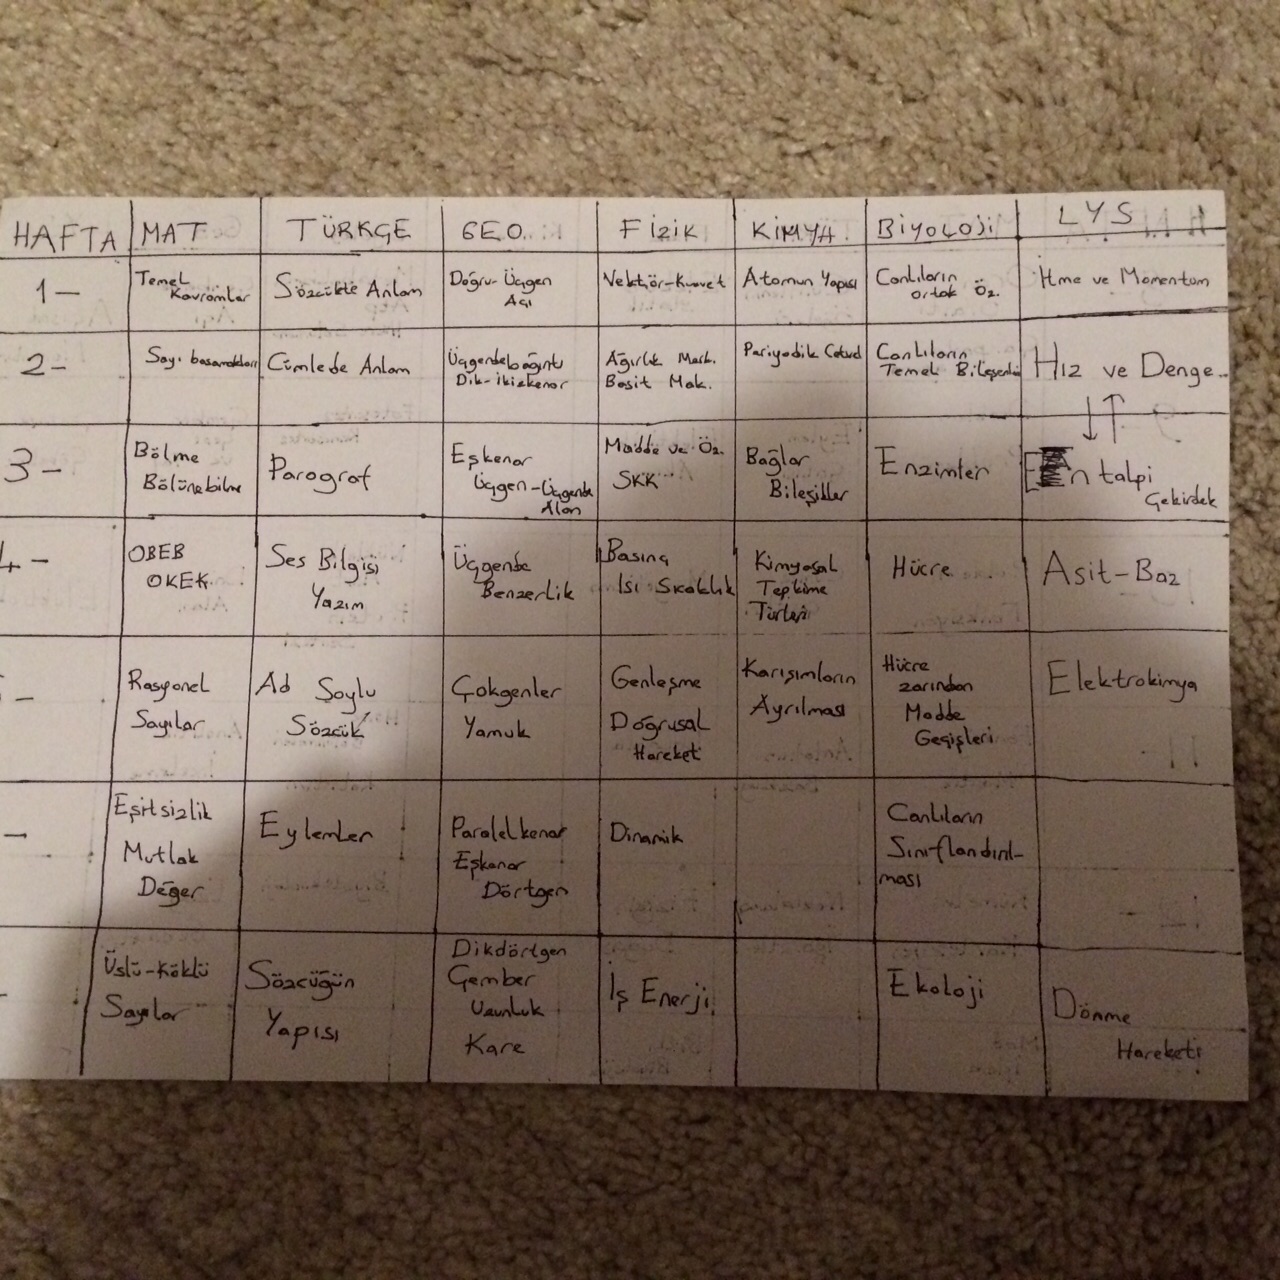 HAFTA MAT TÜRKÇE GEO. Fizik KİMYA Biyoloji LYS
1- Temel Kavramlar Sözcükte Anlam Doğru-Üçgen Açı Vektör-Kuvvet Atomun Yapısı Canlıların ortak Öz. İtme ve Momentum
2- Sayı basamakları Cümlede Anlam Üçgende bağıntı Dik-İkizkenar Ağırlık Merk. Basit Mak. Periyodik Cetvel Canlıların Temel Bileşenleri Hız ve Denge..
3- Bölme Bölünebilme Paragraf Eşkenar Üçgen-Üçgende Alan Madde ve Öz. SKK Bağlar Bileşikler Enzimler Entalpi Çekirdek
4- OBEB OKEK Ses Bilgisi Yazım Üçgende Benzerlik Basınç Isı Sıcaklık Kimyasal Tepkime Türleri Hücre Asit-Baz
- Rasyonel Sayılar Ad Soylu Sözcük Çokgenler Yamuk Genleşme Doğrusal Hareket Karışımların Ayrılması Hücre zarından Madde Geçişleri Elektrokimya
- Eşitsizlik Mutlak Değer Eylemler Paralelkenar Eşkenar Dörtgen Dinamik Canlıların Sınıflandırılması
- Üslü-Köklü Sayılar Sözcüğün Yapısı Dikdörtgen Çember Uzunluk Kare İş Enerji Ekoloji Dönme Hareketi